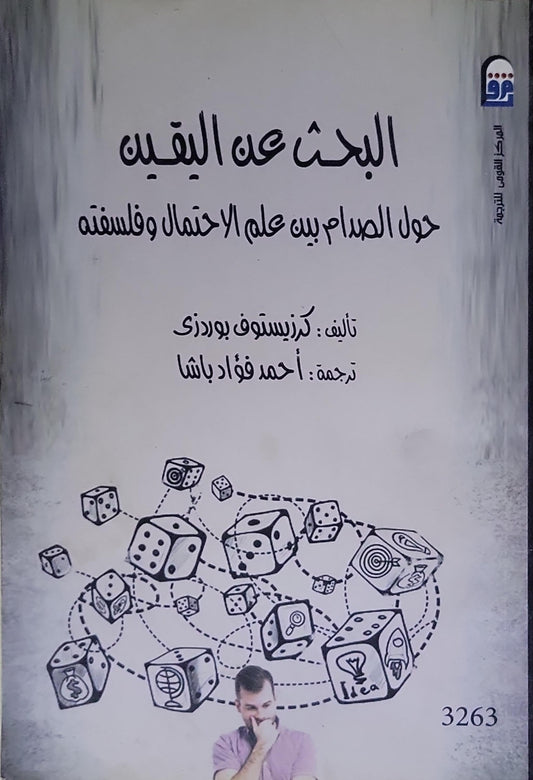 البحث عن اليقين
حول الصدام بين علم الاحتمال وفلسفته
تأليف: كرزيستوف بوردزى
ترجمة: أحمد فؤاد باشا
المركز القومى للترجمة
Idea
3263